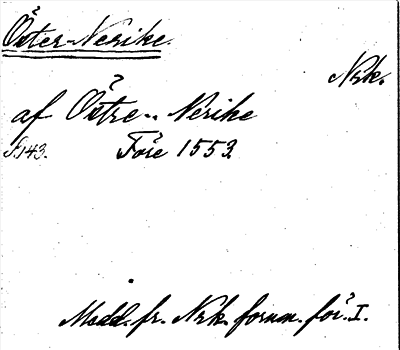 Öster-Nerike.
Nrk.
af Östre-Nerike
S. 143. Före 1553
Medd. fr. Nrk. fornm. för. I.